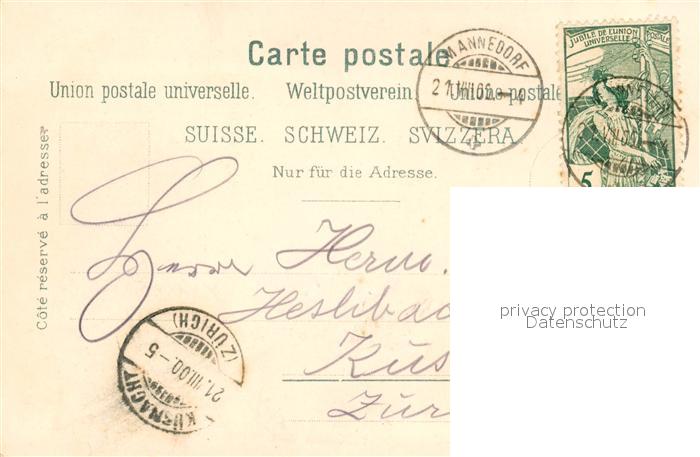 JUBILÉ DE L'UNION POSTALE
UNIVERSELLE
Carte postale
MÄNNEDORF
21.VII.00.-4
Union postale universelle. Weltpostverein. Unione postale
SUISSE. SCHWEIZ. SVIZZERA.
Nur für die Adresse.
Côté réservé à l'adresse
5
Herrn Herm.
Heslibac
Küs
Zür
KÜSNACHT
21.VII.00.-5
(ZÜRICH)
privacy protection
Datenschutz